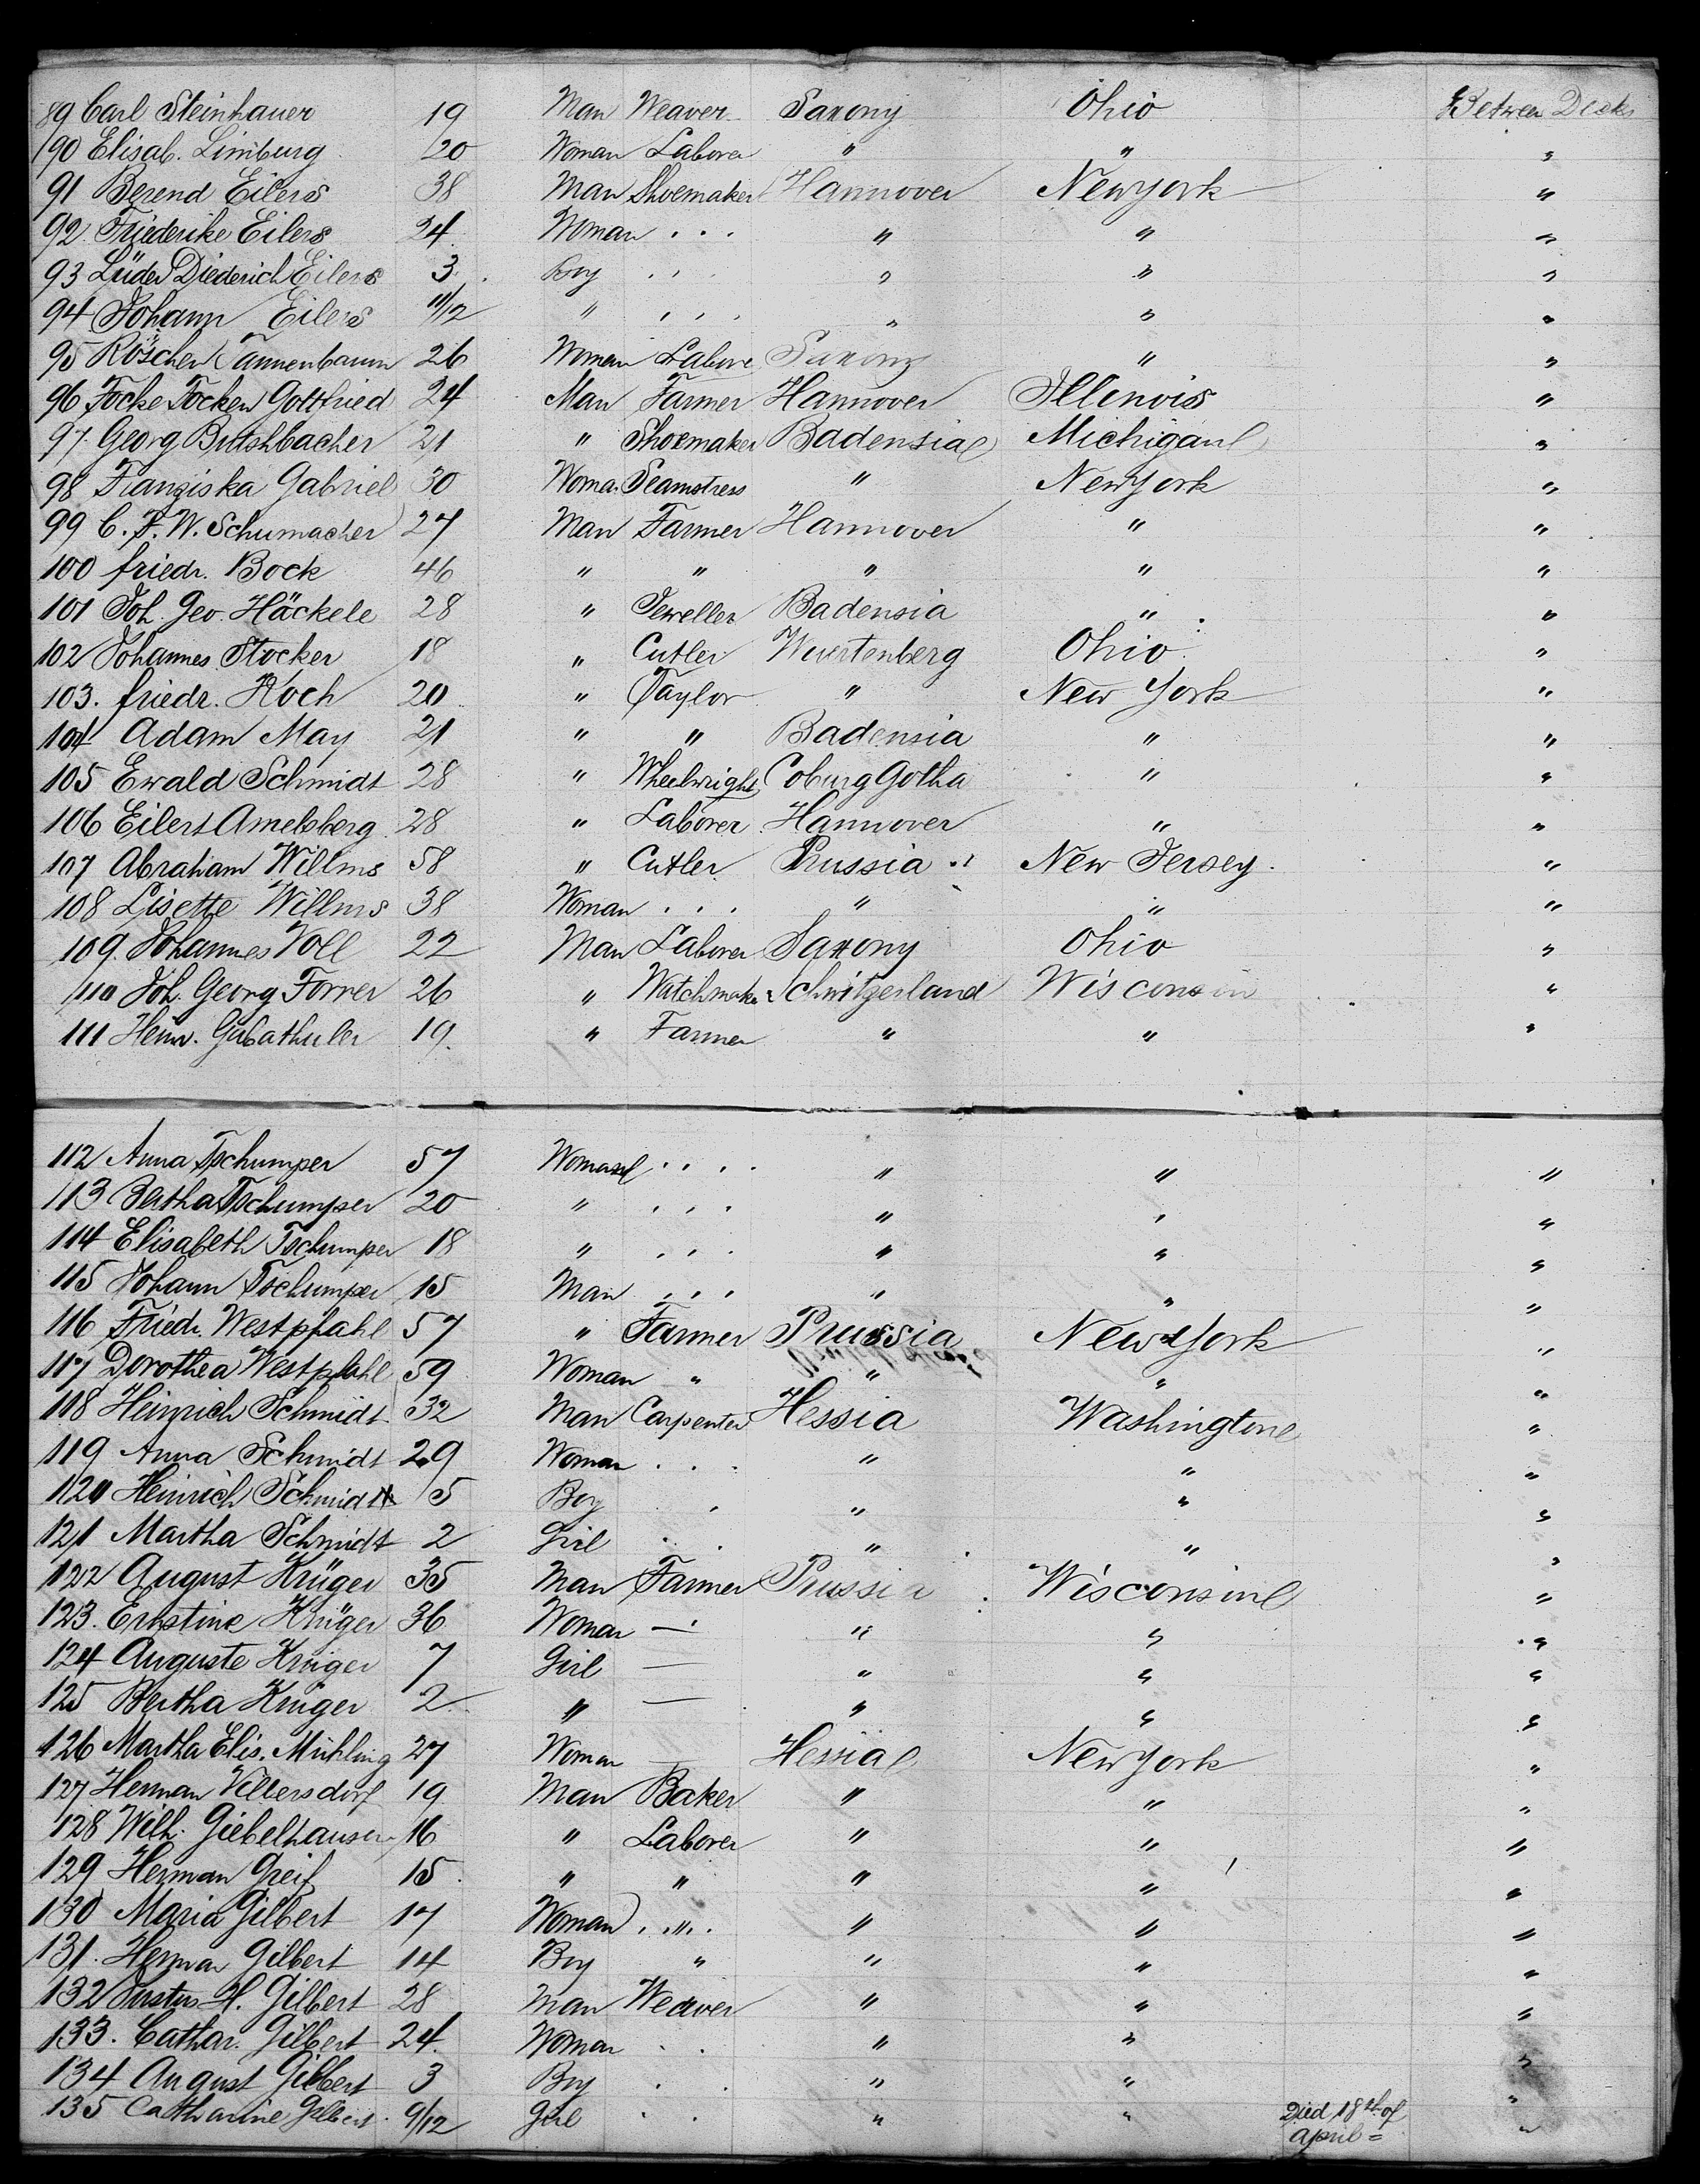 89 Carl Steinhauer 19 Man Weaver Saxony Ohio Between Decks
190 Elisab. Limburg 20 Woman Laborer " " "
91 Berend Eilers 38 Man Shoemaker Hannover Newyork "
92 Friederike Eilers 24 Woman . . . " " "
93 Lüder Diederich Eilers 3 Boy . . . " " "
94 Johann Eilers 11/12 " . . . " " "
95 Röschen Tannenbaum 26 Woman Labore Saxony " "
96 Focke Focken Gottfried 24 Man Farmer Hannover Illinois "
97 Georg Butshbacher 21 " Shoemaker Badensia Michigan "
98 Franziska Gabriel 30 Woma. Seamstress " New York "
99 C. F. W. Schumacher 27 Man Farmer Hannover " "
100 friedr. Bock 46 " " " " "
101 Joh. Geo. Häckele 28 " Jeweller Badensia " "
102 Johannes Stocker 18 " Cutler Wuertenberg Ohio "
103. friedr. Koch 20 " Taylor " New York "
104 Adam May 21 " " Badensia " "
105 Ewald Schmidt 28 " Wheelwright Coburg Gotha " "
106 Eilert Amelsberg 28 " Laborer Hannover " "
107 Abraham Willms 58 " Cutler Prussia New Jersey "
108 Lisette Willms 38 Woman . . . " " "
109. Johannes Voll 22 Man Laborer Saxony Ohio "
110 Joh. Georg Forrer 26 " Watchmaker Schwitzerland Wisconsin "
111 Heinr. Gabathuler 19. " Farmer " " "
112 Anna Tschumper 57 Woman . . . . " " "
113 Bertha Tschumper 20 " . . . " " "
114 Elisabeth Tschumper 18 " . . . " " "
115 Johann Tschumper 15 Man . . . " " "
116 Friedr. Westpfahl 57 " Farmer Prussia New York "
117 Dorothea Westpfahl 59 Woman " " " "
118 Heinrich Schmidt 32 Man Carpenter Hessia Washington "
119 Anna Schmidt 29 Woman . . . " " "
120 Heinrich Schmidt 5 Boy . " " "
121 Martha Schmidt 2 Girl . . " " "
122 August Krüger 35 Man Farmer Prussia Wisconsin "
123. Ernstine Krüger 36 Woman — " " "
124 Auguste Krüger 7 Girl — " " "
125 Bertha Krüger 2 " — " " "
126 Martha Elis. Mühling 27 Woman — Hessia New York "
127 Herman Villersdorf 19 Man Baker " " "
128 Wilh. Giebelhausen 16 " Laborer " " "
129 Herman Greif 15 " " " " "
130 Maria Gilbert 17 Woman . " . " " "
131. Herman Gilbert 14 Boy " " " "
132 Justus H. Gilbert 28 Man Weawer " " "
133. Cathar. Gilbert 24. Woman . . " " "
134 August Gilbert 3 Boy . . " " "
135 Catharine Gilbert 9/12 Girl . . " " Died 18th of "
April =